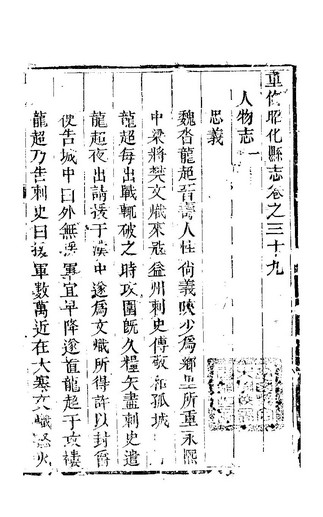 重修昭化縣志卷之三十九
人物志一
忠義
魏沓龍超晉壽人性尚義俠少為鄉里所重永熙
中梁將樊文熾來寇益州刺史傅敬和孤城
龍超每出戰輒破之時攻圍既久糧矢盡刺史遣
龍超夜出請援于漢中遂為文熾所得許以封爵
使告城中曰外無援軍宜早降遂置龍超于攻樓
龍超乃告刺史曰援軍數萬近在大寒文熾怒火